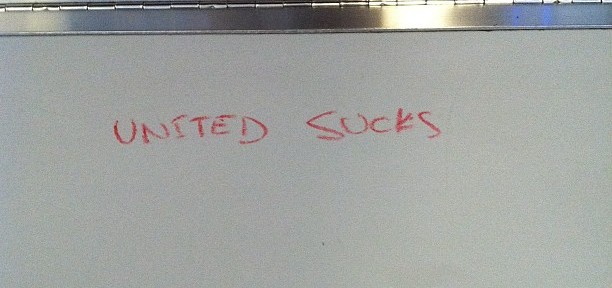 UNITED SUCKS